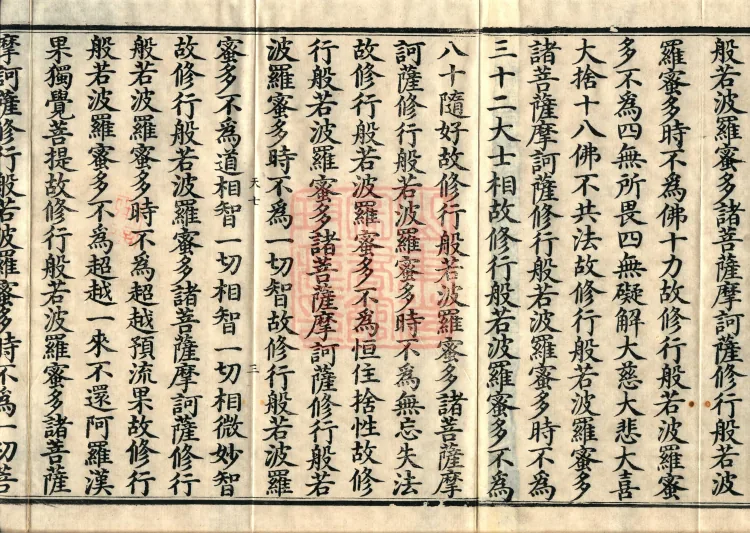 般若波羅蜜多諸菩薩摩訶薩修行般若波
羅蜜多時不為佛十力故修行般若波羅蜜
多不為四無所畏四無礙解大慈大悲大喜
大捨十八佛不共法故修行般若波羅蜜多
諸菩薩摩訶薩修行般若波羅蜜多時不為
三十二大士相故修行般若波羅蜜多不為
八十隨好故修行般若波羅蜜多諸菩薩摩
訶薩修行般若波羅蜜多時不為無忘失法
故修行般若波羅蜜多不為恒住捨性故修
行般若波羅蜜多諸菩薩摩訶薩修行般若
波羅蜜多時不為一切智故修行般若波羅
天七
三
蜜多不為道相智一切相智一切相微妙智
故修行般若波羅蜜多諸菩薩摩訶薩修行
般若波羅蜜多時不為超越預流果故修行
般若波羅蜜多不為超越一來不還阿羅漢
果獨覺菩提故修行般若波羅蜜多諸菩薩
摩訶薩修行般若波羅蜜多時不為一切菩